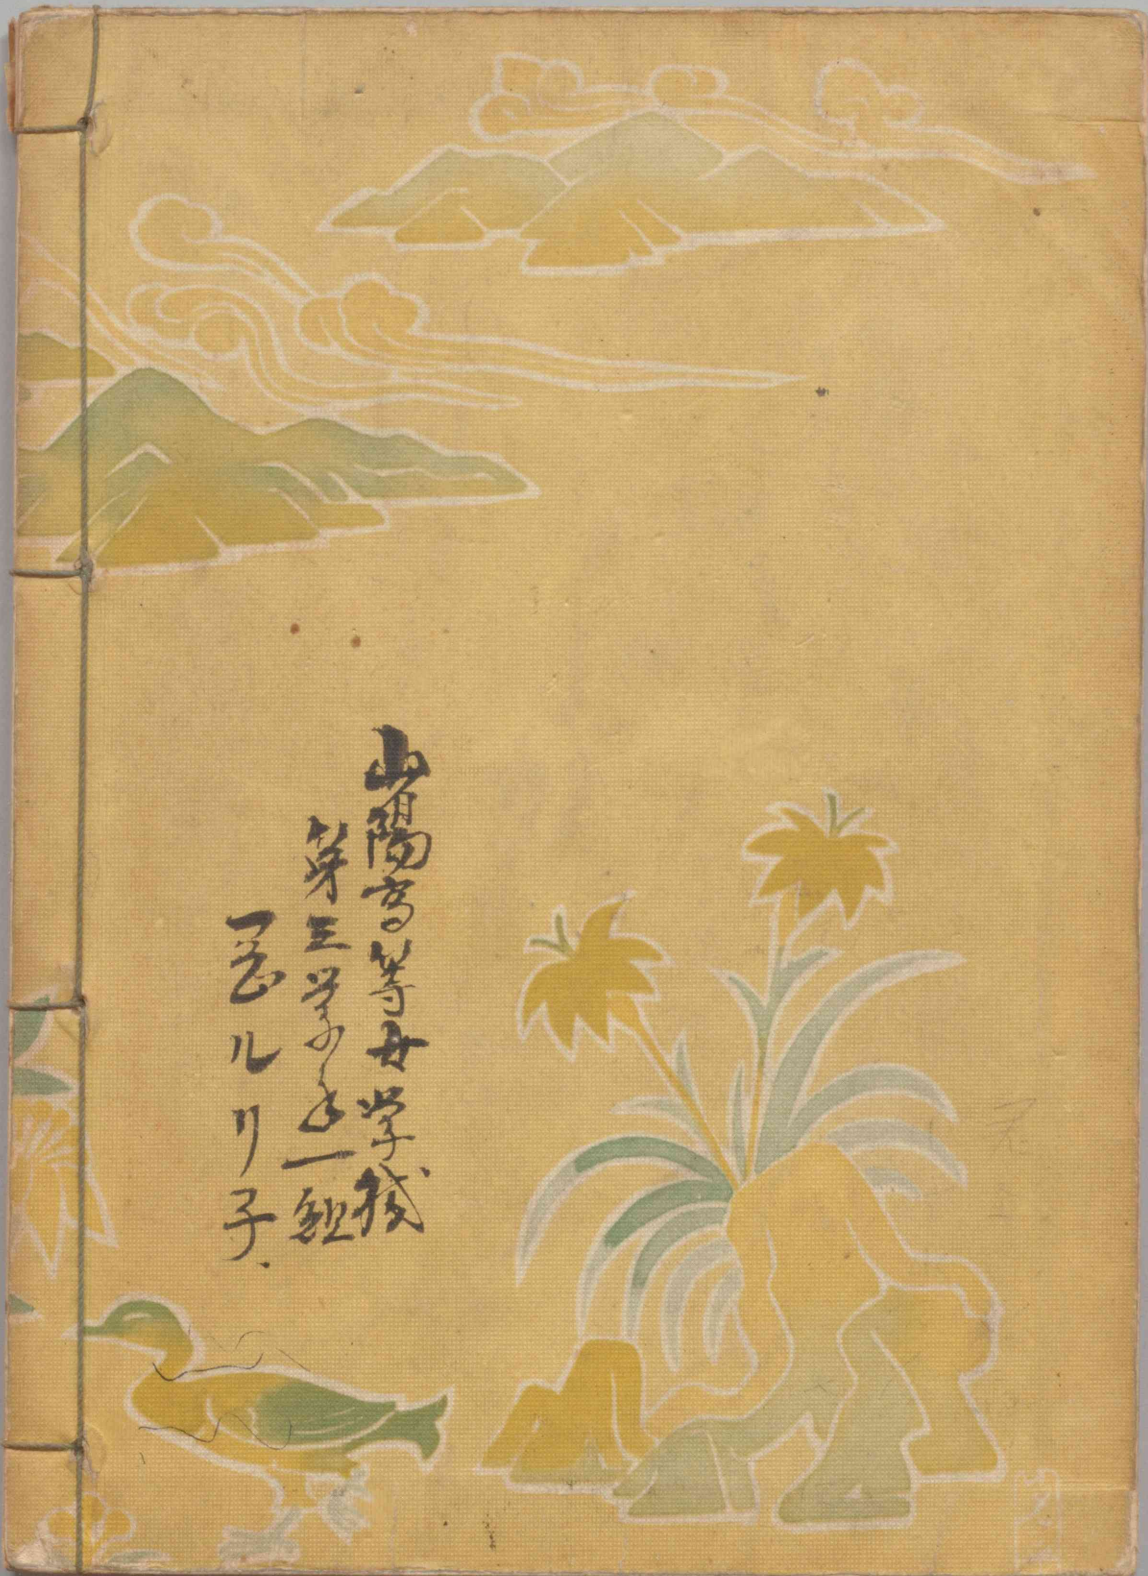 山陽高等女学校
第三学年一組
一色ルリ子